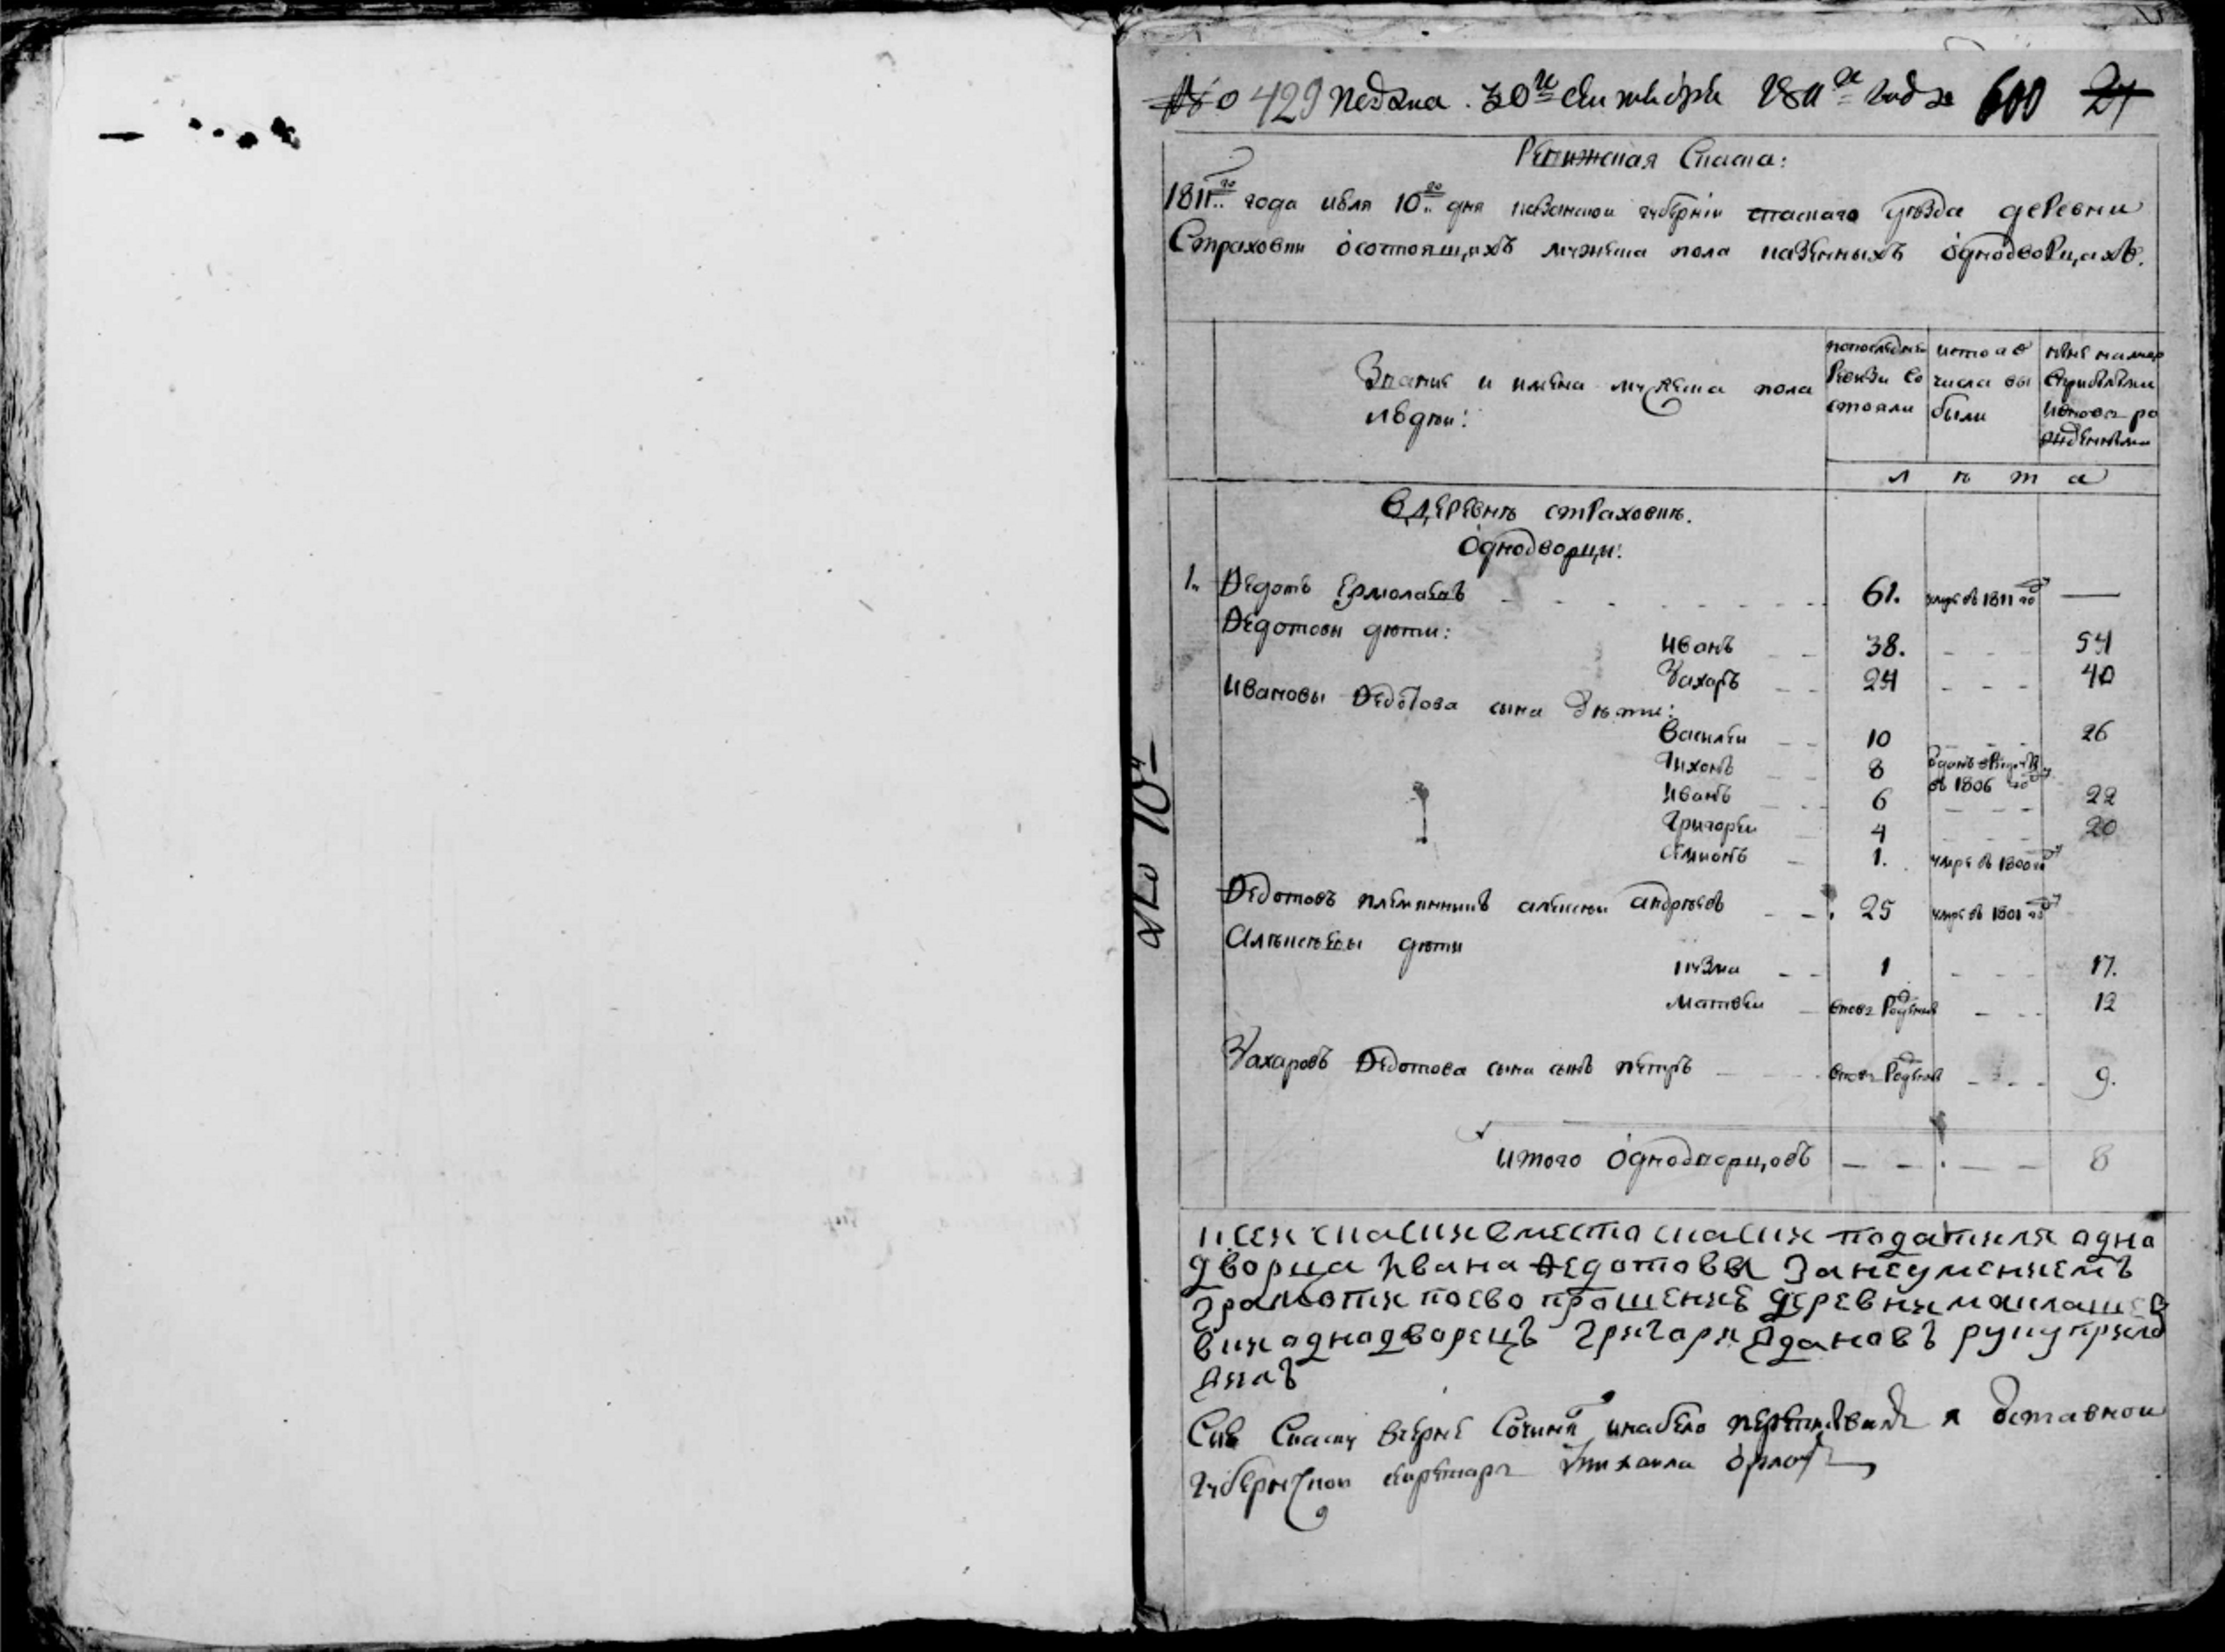 № 429 подана 30го сентября 1811го года 600 24
Ревижская Скаска:
1811го года июля 10го дня казанской губернии спаскаго уезда деревни
Страховки о состоящихъ мужеска пола казенныхъ однодворцахъ.
Звание и имена мужеска пола людей:
по последней ревизи состояли
ис того числа выбыли
ныне налицо
лѣта
В деревнѣ страховкѣ.
Однодворцы:
1. Ѳедотъ Ермолаевъ 61. умре въ 1811 год —
Ѳедотовы дѣти:
Иванъ 38. 54
Захаръ 24 40
Ивановы Ѳедотова сына дѣти:
Василей 10 26
Тихонъ 8 въ 1806 год
Иванъ 6 22
Григорей 4 20
Семионъ 1. умре въ 1800 год
Ѳедотовъ племянникъ алексей андрѣевъ 25 умре въ 1801 год
Алѣксѣевы дѣти
кузма 1 17.
матвей вновь рожденъ 12
Захаровъ Ѳедотова сына сынъ петръ вновь рожденъ 9.
итого однодворцовъ 8
к сей скаски вместо скаски подателя одна
дворца Ивана Ѳедотова за неумениемъ
грамоти по ево прошение деревни
вки аднадворецъ григори ждановъ руку прило
жилъ
Сию Скаску вчерне Сочинялъ и набело переписывалъ отставной
губернской секретарь Михаила Орловъ